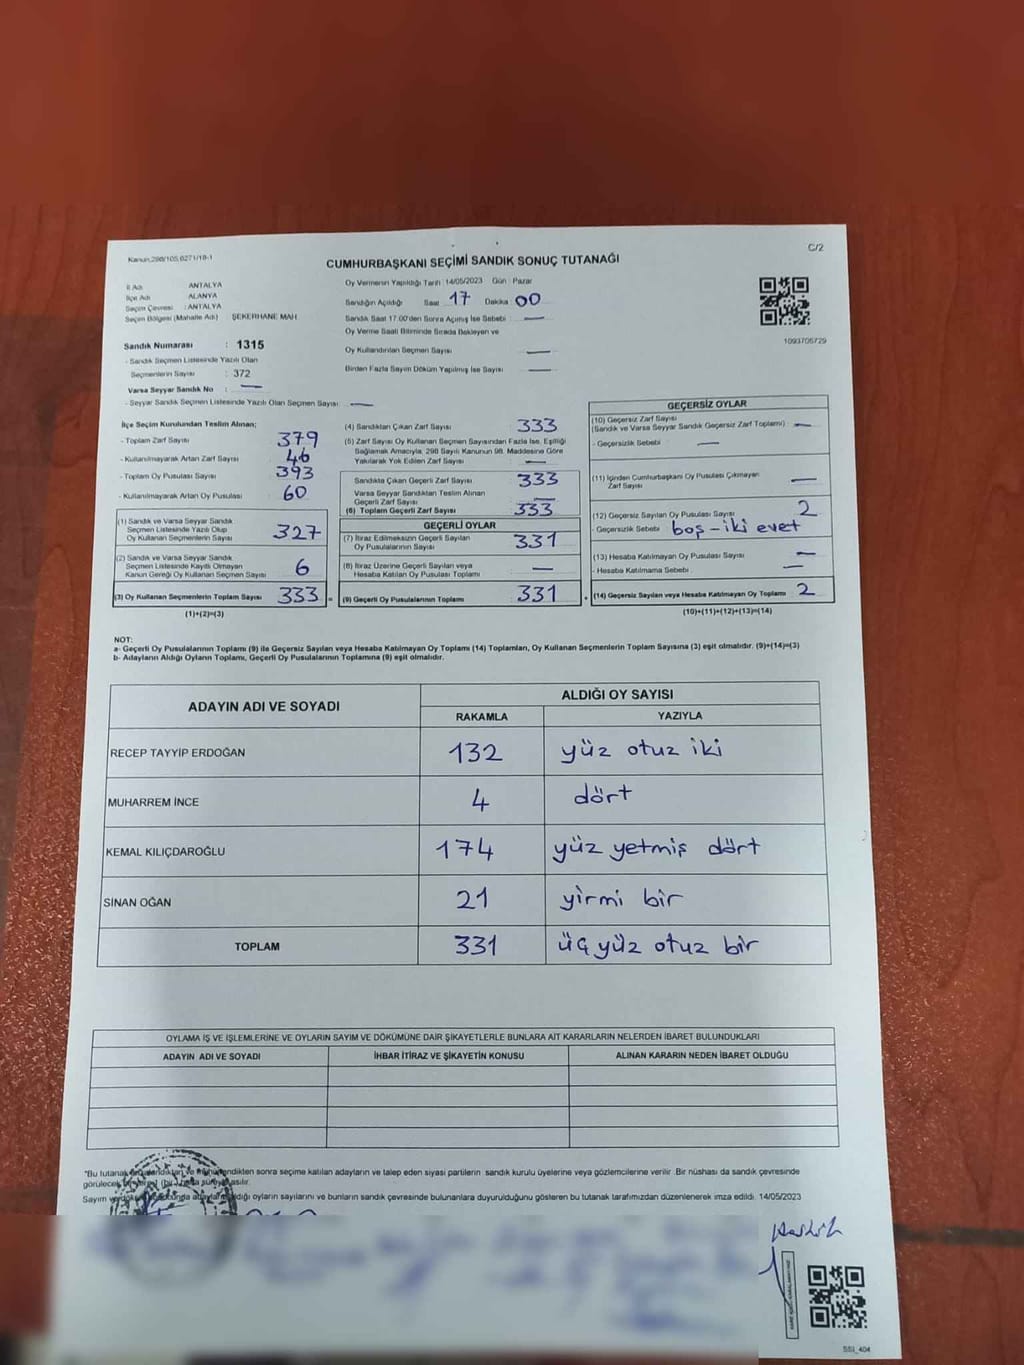 Kanun,298/105,6271/18-1
C/2
CUMHURBAŞKANI SEÇİMİ SANDIK SONUÇ TUTANAĞI
İl Adı ANTALYA
İlçe Adı ALANYA
Seçim Çevresi : ANTALYA
Seçim Bölgesi (Mahalle Adı) : ŞEKERHANE MAH.
Sandık Numarası : 1315
- Sandık Seçmen Listesinde Yazılı Olan
Seçmenlerin Sayısı : 372
Varsa Seyyar Sandık No : —
- Seyyar Sandık Seçmen Listesinde Yazılı Olan Seçmen Sayısı : —
Oy Vermenin Yapıldığı Tarih :14/05/2023 Gün : Pazar
Sandığın Açıldığı Saat 17 Dakika 00
Sandık Saat 17.00'den Sonra Açılmış İse Sebebi : —
Oy Verme Saati Bitiminde Sırada Bekleyen ve
Oy Kullandırılan Seçmen Sayısı —
Birden Fazla Sayım Döküm Yapılmış İse Sayısı : —
1093705729
İlçe Seçim Kurulundan Teslim Alınan;
- Toplam Zarf Sayısı 379
- Kullanılmayarak Artan Zarf Sayısı 46
- Toplam Oy Pusulası Sayısı 393
- Kullanılmayarak Artan Oy Pusulası 60
(1) Sandık ve Varsa Seyyar Sandık
Seçmen Listesinde Yazılı Olup
Oy Kullanan Seçmenlerin Sayısı 327
(2) Sandık ve Varsa Seyyar Sandık
Seçmen Listesinde Kayıtlı Olmayan
Kanun Gereği Oy Kullanan Seçmen Sayısı 6
(3) Oy Kullanan Seçmenlerin Toplam Sayısı 333 =
(1)+(2)=(3)
(4) Sandıktan Çıkan Zarf Sayısı : 333
(5) Zarf Sayısı Oy Kullanan Seçmen Sayısından Fazla İse, Eşitliği
Sağlamak Amacıyla, 298 Sayılı Kanunun 98. Maddesine Göre
Yakılarak Yok Edilen Zarf Sayısı : —
Sandıkta Çıkan Geçerli Zarf Sayısı : 333
Varsa Seyyar Sandıktan Teslim Alınan
Geçerli Zarf Sayısı : —
(6) Toplam Geçerli Zarf Sayısı : 333
GEÇERLİ OYLAR
(7) İtiraz Edilmeksizin Geçerli Sayılan
Oy Pusulalarının Sayısı : 331
(8) İtiraz Üzerine Geçerli Sayılan veya
Hesaba Katılan Oy Pusulası Toplamı : —
(9) Geçerli Oy Pusulalarının Toplamı : 331 +
GEÇERSİZ OYLAR
(10) Geçersiz Zarf Sayısı
(Sandık ve Varsa Seyyar Sandık Geçersiz Zarf Toplamı) : —
- Geçersizlik Sebebi : —
(11) İçinden Cumhurbaşkanı Oy Pusulası Çıkmayan
Zarf Sayısı : —
(12) Geçersiz Sayılan Oy Pusulası Sayısı : 2
- Geçersizlik Sebebi : boş - iki evet
(13) Hesaba Katılmayan Oy Pusulası Sayısı : —
- Hesaba Katılmama Sebebi : —
(14) Geçersiz Sayılan veya Hesaba Katılmayan Oy Toplamı : 2
(10)+(11)+(12)+(13)=(14)
NOT:
a- Geçerli Oy Pusulalarının Toplamı (9) ile Geçersiz Sayılan veya Hesaba Katılmayan Oy Toplamı (14) Toplamları, Oy Kullanan Seçmenlerin Toplam Sayısına (3) eşit olmalıdır. (9)+(14)=(3)
b- Adayların Aldığı Oyların Toplamı, Geçerli Oy Pusulalarının Toplamına (9) eşit olmalıdır.
ADAYIN ADI VE SOYADI
ALDIĞI OY SAYISI
RAKAMLA YAZIYLA
RECEP TAYYİP ERDOĞAN 132 yüz otuz iki
MUHARREM İNCE 4 dört
KEMAL KILIÇDAROĞLU 174 yüz yetmiş dört
SİNAN OĞAN 21 yirmi bir
TOPLAM 331 üç yüz otuz bir
OYLAMA İŞ VE İŞLEMLERİNE VE OYLARIN SAYIM VE DÖKÜMÜNE DAİR ŞİKAYETLERLE BUNLARA AİT KARARLARIN NELERDEN İBARET BULUNDUKLARI
ADAYIN ADI VE SOYADI İHBAR İTİRAZ VE ŞİKAYETİN KONUSU ALINAN KARARIN NEDEN İBARET OLDUĞU
"Bu tutanak sonra seçime katılan adayların ve talep eden siyasi partilerin sandık kurulu üyelerine veya gözlemcilerine verilir .Bir nüshası da sandık çevresinde
görülecek
Sayım aldığı oyların sayılarını ve bunların sandık çevresinde bulunanlara duyurulduğunu gösteren bu tutanak tarafımızdan düzenlenerek imza edildi. 14/05/2023
SSI_404